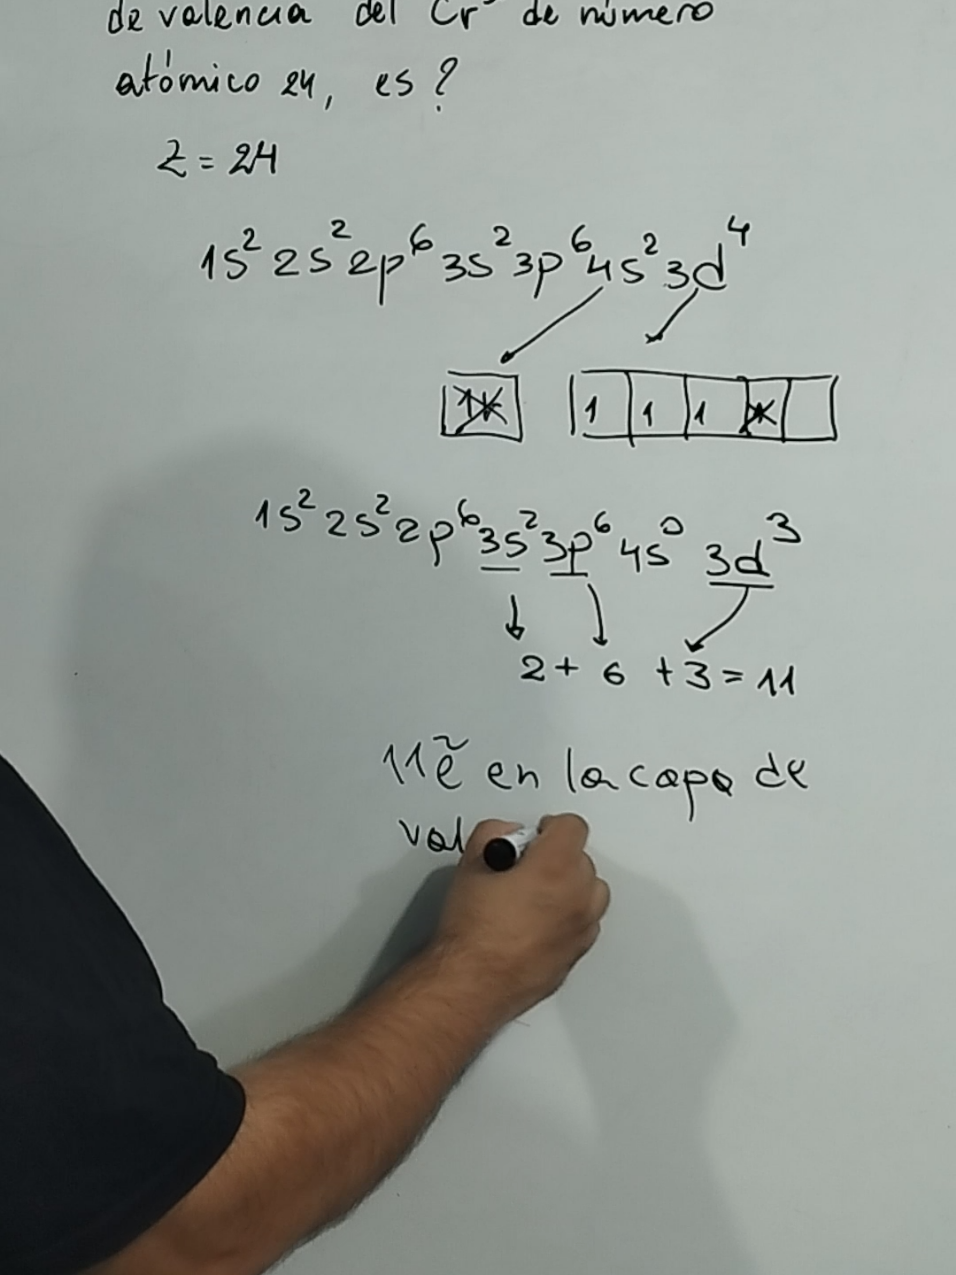 de valencia del Cr³ de número
atómico 24, es?
Z = 24
1s² 2s² 2p⁶ 3s² 3p⁶ 4s² 3d⁴
1 1 1
1s² 2s² 2p⁶ 3s² 3p⁶ 4s⁰ 3d³
2 + 6 + 3 = 11
11 ẽ en la capa de
val